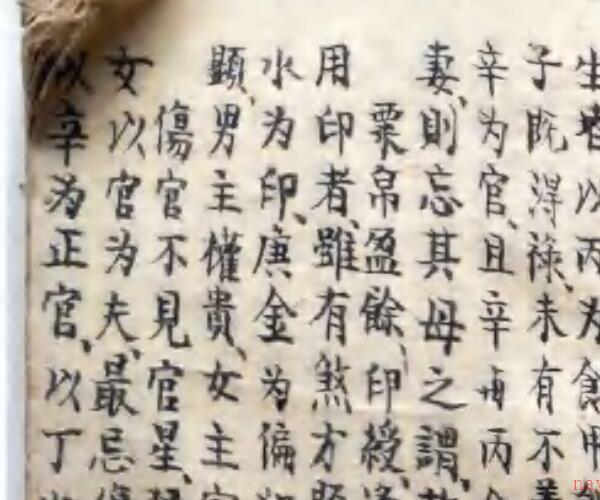 生皆以丙为食
子既得祿、未有不
辛为官、且辛毋丙
妻、則忘其母之謂、
粟帛盈餘、印綬
用印者、雖有煞才
水为印、庚金为偏
顯、男主權貴、女主
傷官不見官星、
女以官为夫、最忌
以辛为正官、以丁